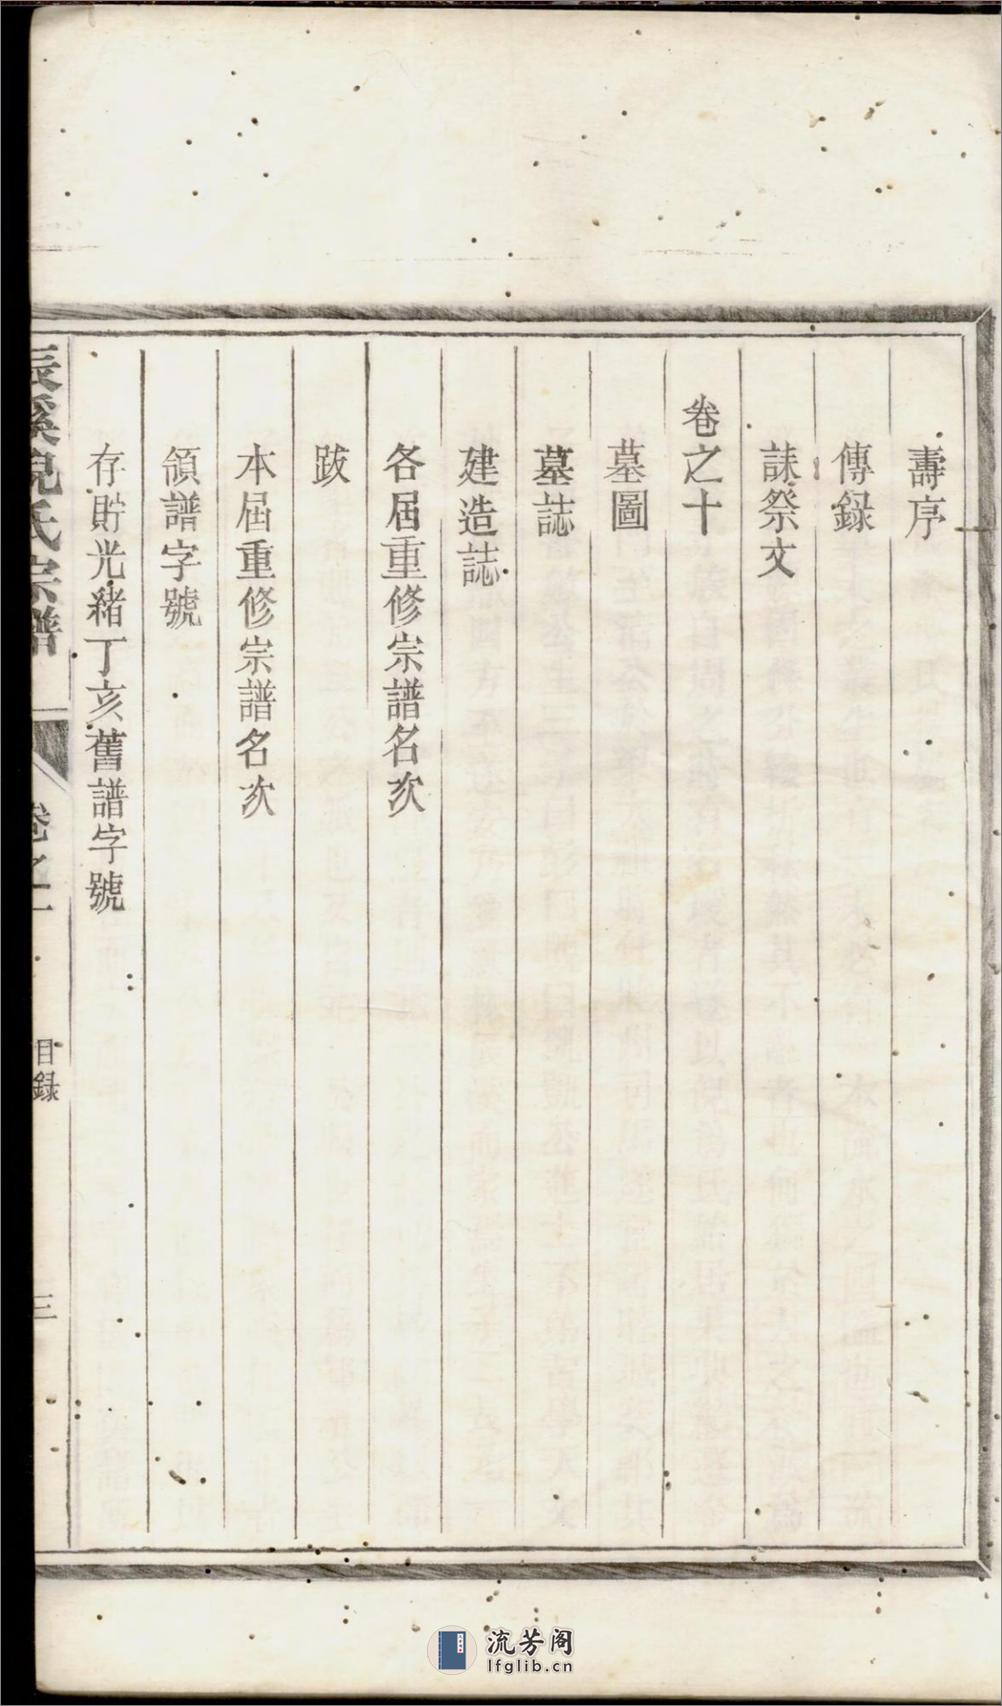 壽序
傳錄
誄祭文
卷之十
墓圖
墓誌
建造誌
各屆重修宗譜名次
跋
本屆重修宗譜名次
領譜字號
存貯光緒丁亥舊譜字號
辰溪倪氏宗譜
卷之一
目錄
三
流芳阁
lfglib.cn